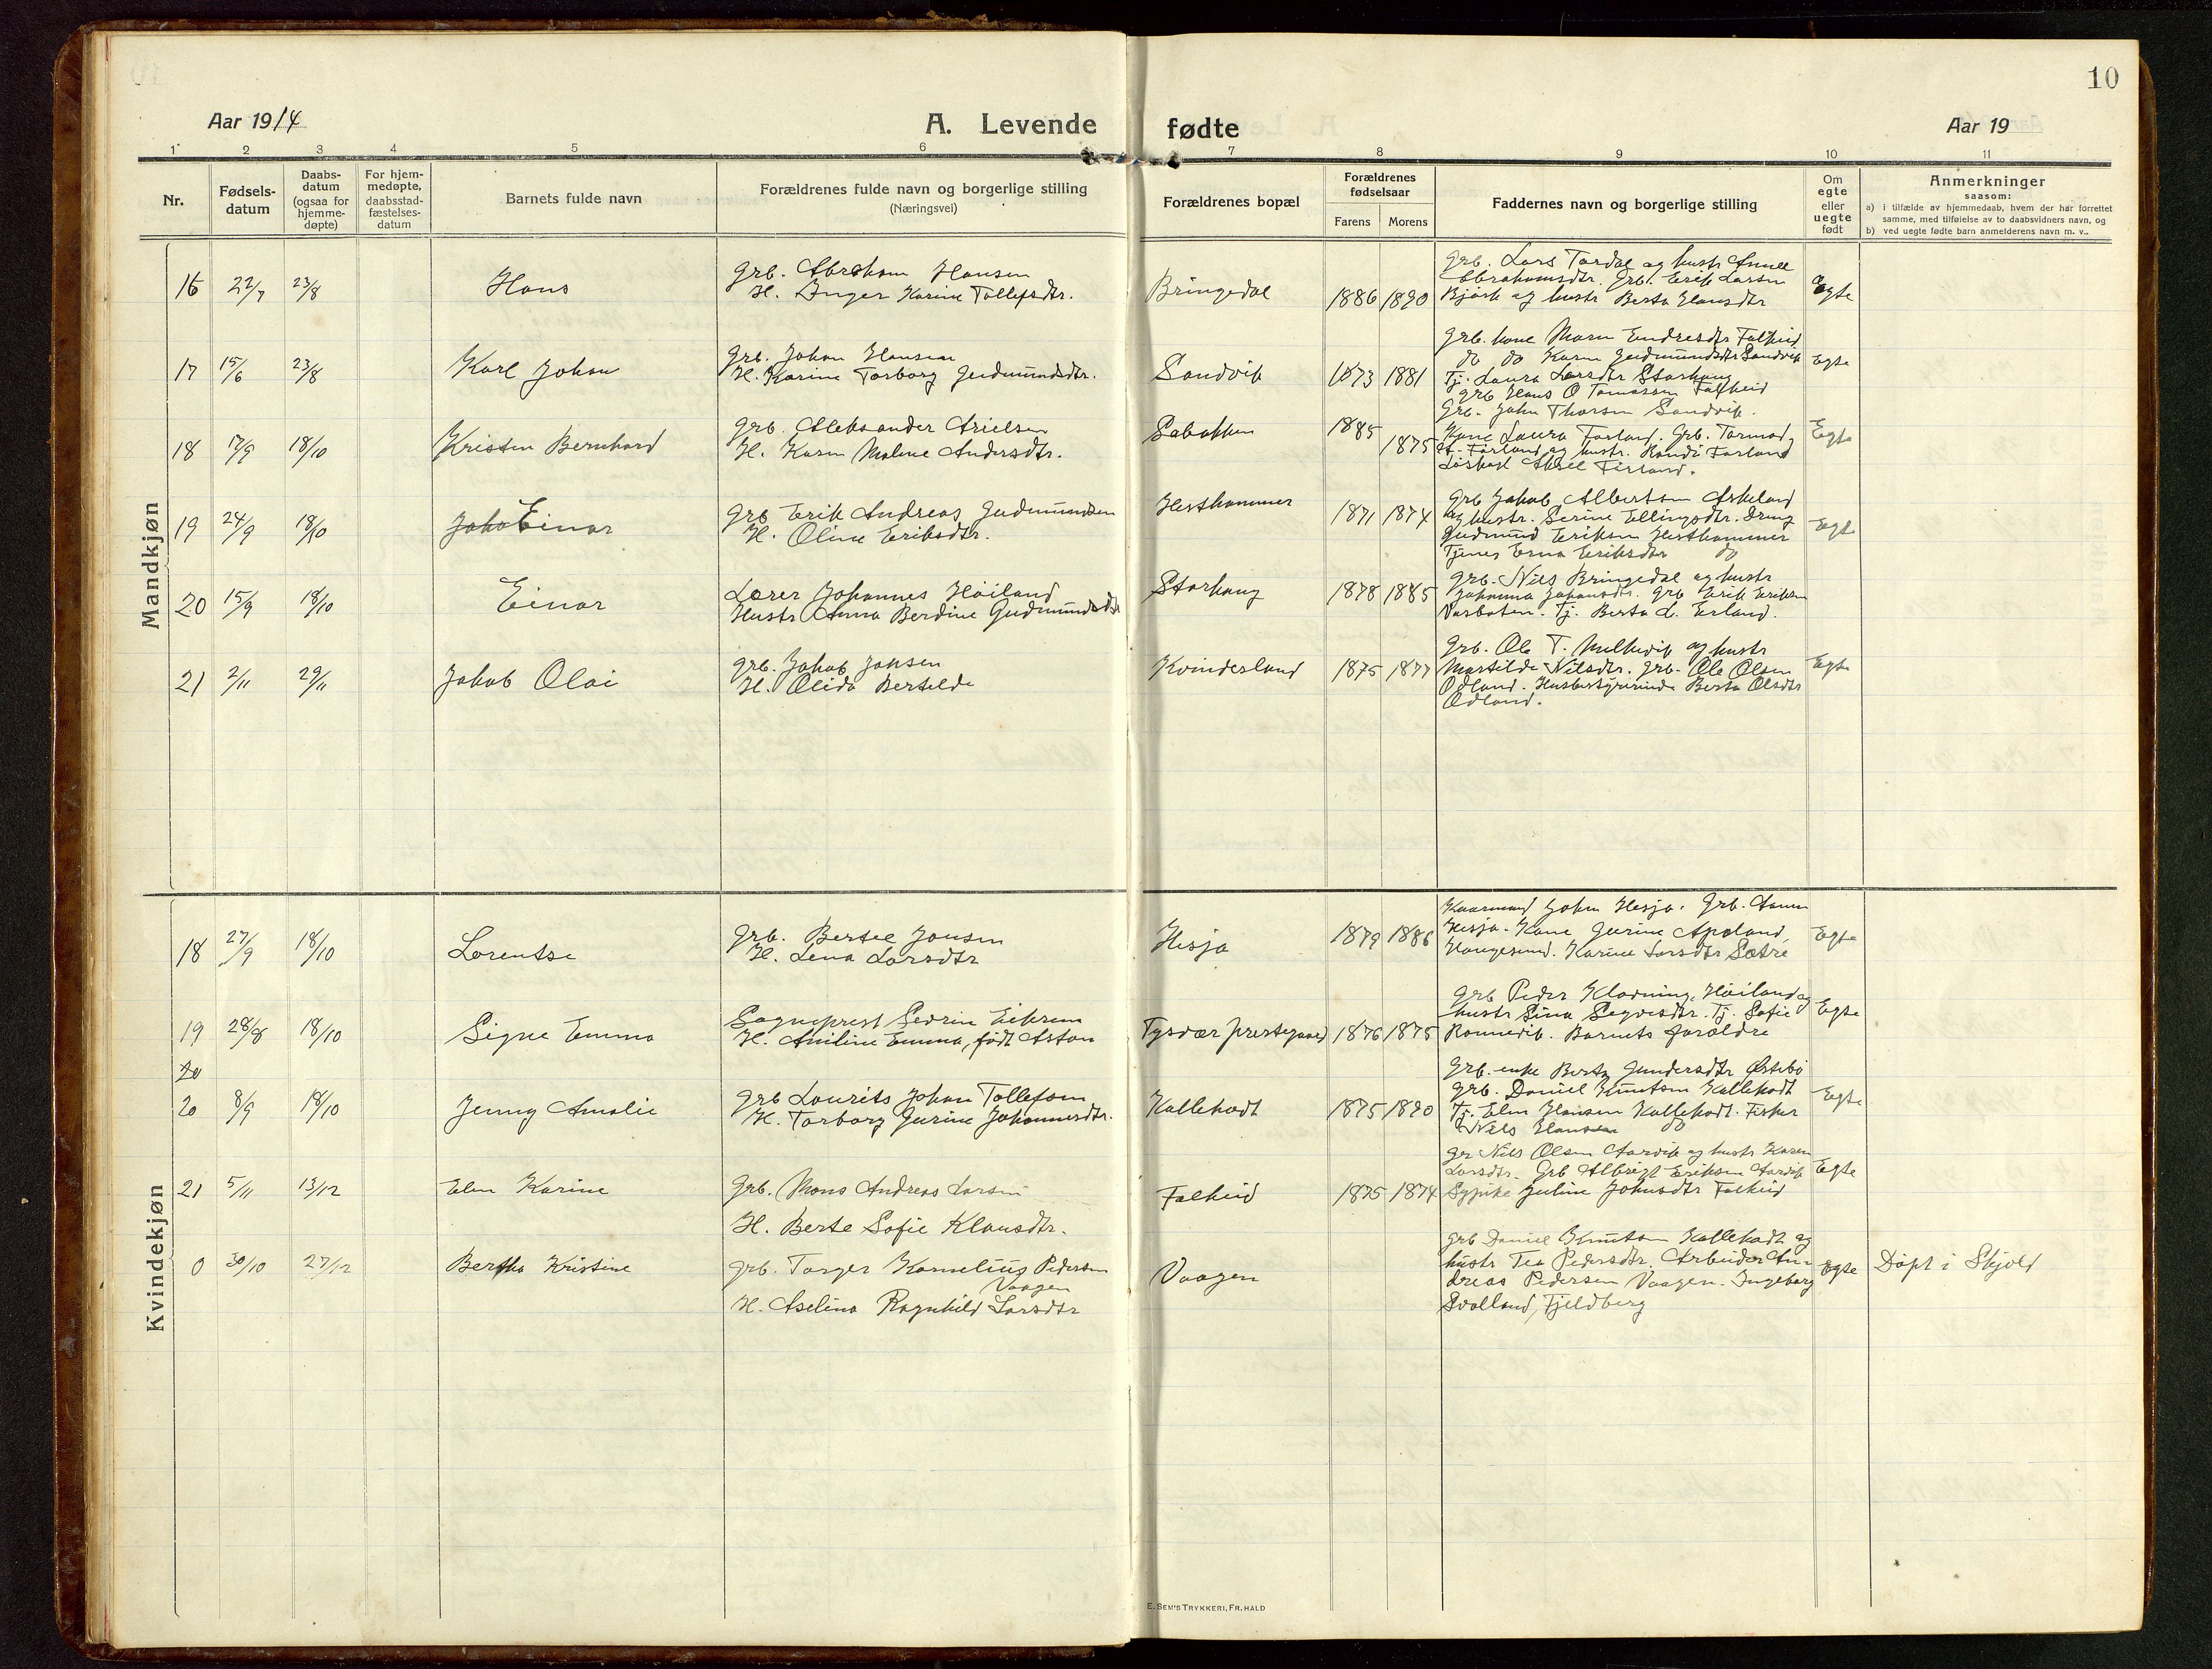 10
Aar 1914
A. Levende fødte
Aar 19
1 2 3 4 5 6 7 8 9 10 11
Nr.
Fødsels-
datum
Daabs-
datum
(ogsaa for
hjemme-
døpte)
For hjem-
medøpte,
daabsstad-
fæstelses-
datum
Barnets fulde navn
Forældrenes fulde navn og borgerlige stilling
(Næringsvei)
Forældrenes bopæl
Forældrenes
fødselsaar
Farens Morens
Faddernes navn og borgerlige stilling
Om
egte
eller
uegte
født
Anmerkninger
saasom:
a) i tilfælde av hjemmedaab, hvem der har forrettet
samme, med tilføielse av to daabsvidners navn, og
b) ved uegte fødte barn anmelderens navn m. v..
Mandkjøn
16 22/7 23/8 Hans
Grb. Abraham Hansen
H. Inger Karine Tollefsdtr.
Bringedal 1886 1890
Grb. Lars Tordal og hustr Anne
Abrahamsdtr. Grb. Erik Larsen
Bjørk og hustr Berta Hansdtr
Egte
17 15/6 23/8 Karl Johan
Grb. Johan Hansen
H. Karine Torborg Gudmundsdtr.
Sandvik 1873 1881
Grb. kone Maren Endresdtr Falkeid
do do Karen Gudmundsdtr Sandvik
Tj. Laura Larsdtr Storhaug
Grb Hans O Tomassen Falkeid
Grb. John Thorsen Sandvik.
Egte
18 17/9 18/10 Kristen Bernhard
Grb. Aleksander Arielsen
H. Karen Malene Andersdtr.
1885 1875
Kone Laura Førland. Grb. Tormod
Førland og hustr. Randi Førland
Egte
19 24/9 18/10 Einar
Grb Erik Andreas Gudmundsen
H. Oline Eriksdtr.
Hesthammer 1871 1874
Grb Jakob Albertsen Askeland
og hustr. Serine Ellingsdtr. Dreng
Gudmund Eriksen Hesthammer
Tjenes Erna Eriksdtr do
Egte
20 15/9 18/10 Einar
Lærer Johannes Høiland
Hustr Anna Berdine Gudmundsdtr
Storhaug 1878 1885
Grb. Nils Bringedal og hustr
Johanna Johansdtr. Grb Erik Eriksen
Tj. Berta L. Erland.
21 2/11 29/11 Jakob Olai
Grb. Jakob Jansen
H. Olida Bertilde
Kvinderland 1875 1877
Grb. Ole T. Mulkevik og hustr
Martilde Nilsdtr. Grb. Ole Olsen
Ødland. Husbestyrerinde Berta Olsdtr
Ødland.
Egte
Kvindekjøn
18 27/9 18/10 Lorentse
Grb. Bertel Jonsen
H. Lena Larsdtr
Hesja 1879 1886
Kaarmand John Hesja. Grb. Aanen
Hesja. Kone Gurine Apeland,
Haugesund. Karine Larsdtr Sætre
Egte
19 28/8 18/10 Signe Emma
Sogneprest Sedrin Eikrem
H. Aniline Emma, født Aston
Tysvær prestegaard 1876 1875
Grb Peder Kladning, Høiland og
hustr Sina Segvesdtr. Tj. Sofie
Rønnevik. Barnets forældre
Egte
20
20 8/9 18/10 Jenny Amalie
Grb Laurits Johan Tollefsen
H. Torborg Gurine Johannesdtr.
Kallekodt 1875 1890
Grb. enke Berta Gundersdtr Østebø
Grb. Daniel Knutsen Kallekodt
Tj. Elen Hansen Kallekodt. Fisker
Nils Hansen do
Egte
21 5/11 13/12 Elen Karine
Grb. Mons Andreas Larsen
H. Berte Sofie Klausdtr.
Falkeid 1875 1874
Gr Nils Olsen Aarvik og hustr Karen
Larsdtr. Grb Albrigt Eriksen Aarvik
Sypike Juline Johnsdtr Falkeid
Egte
0 30/10 27/12 Bertha Kristine
Grb. Torger Kornelius Pedersen
Vaagen
H. Aselina Ragnhild Larsdtr
Vaagen
Grb Daniel Knutsen Kallekodt og
hustr Tea Pedersdtr. Arbeider An-
dreas Pedersen Vaagen. Ingeborg
Svolland, Fjeldberg
Egte
Døpt i Skjold
E. SEM'S TRYKKERI, FR. HALD